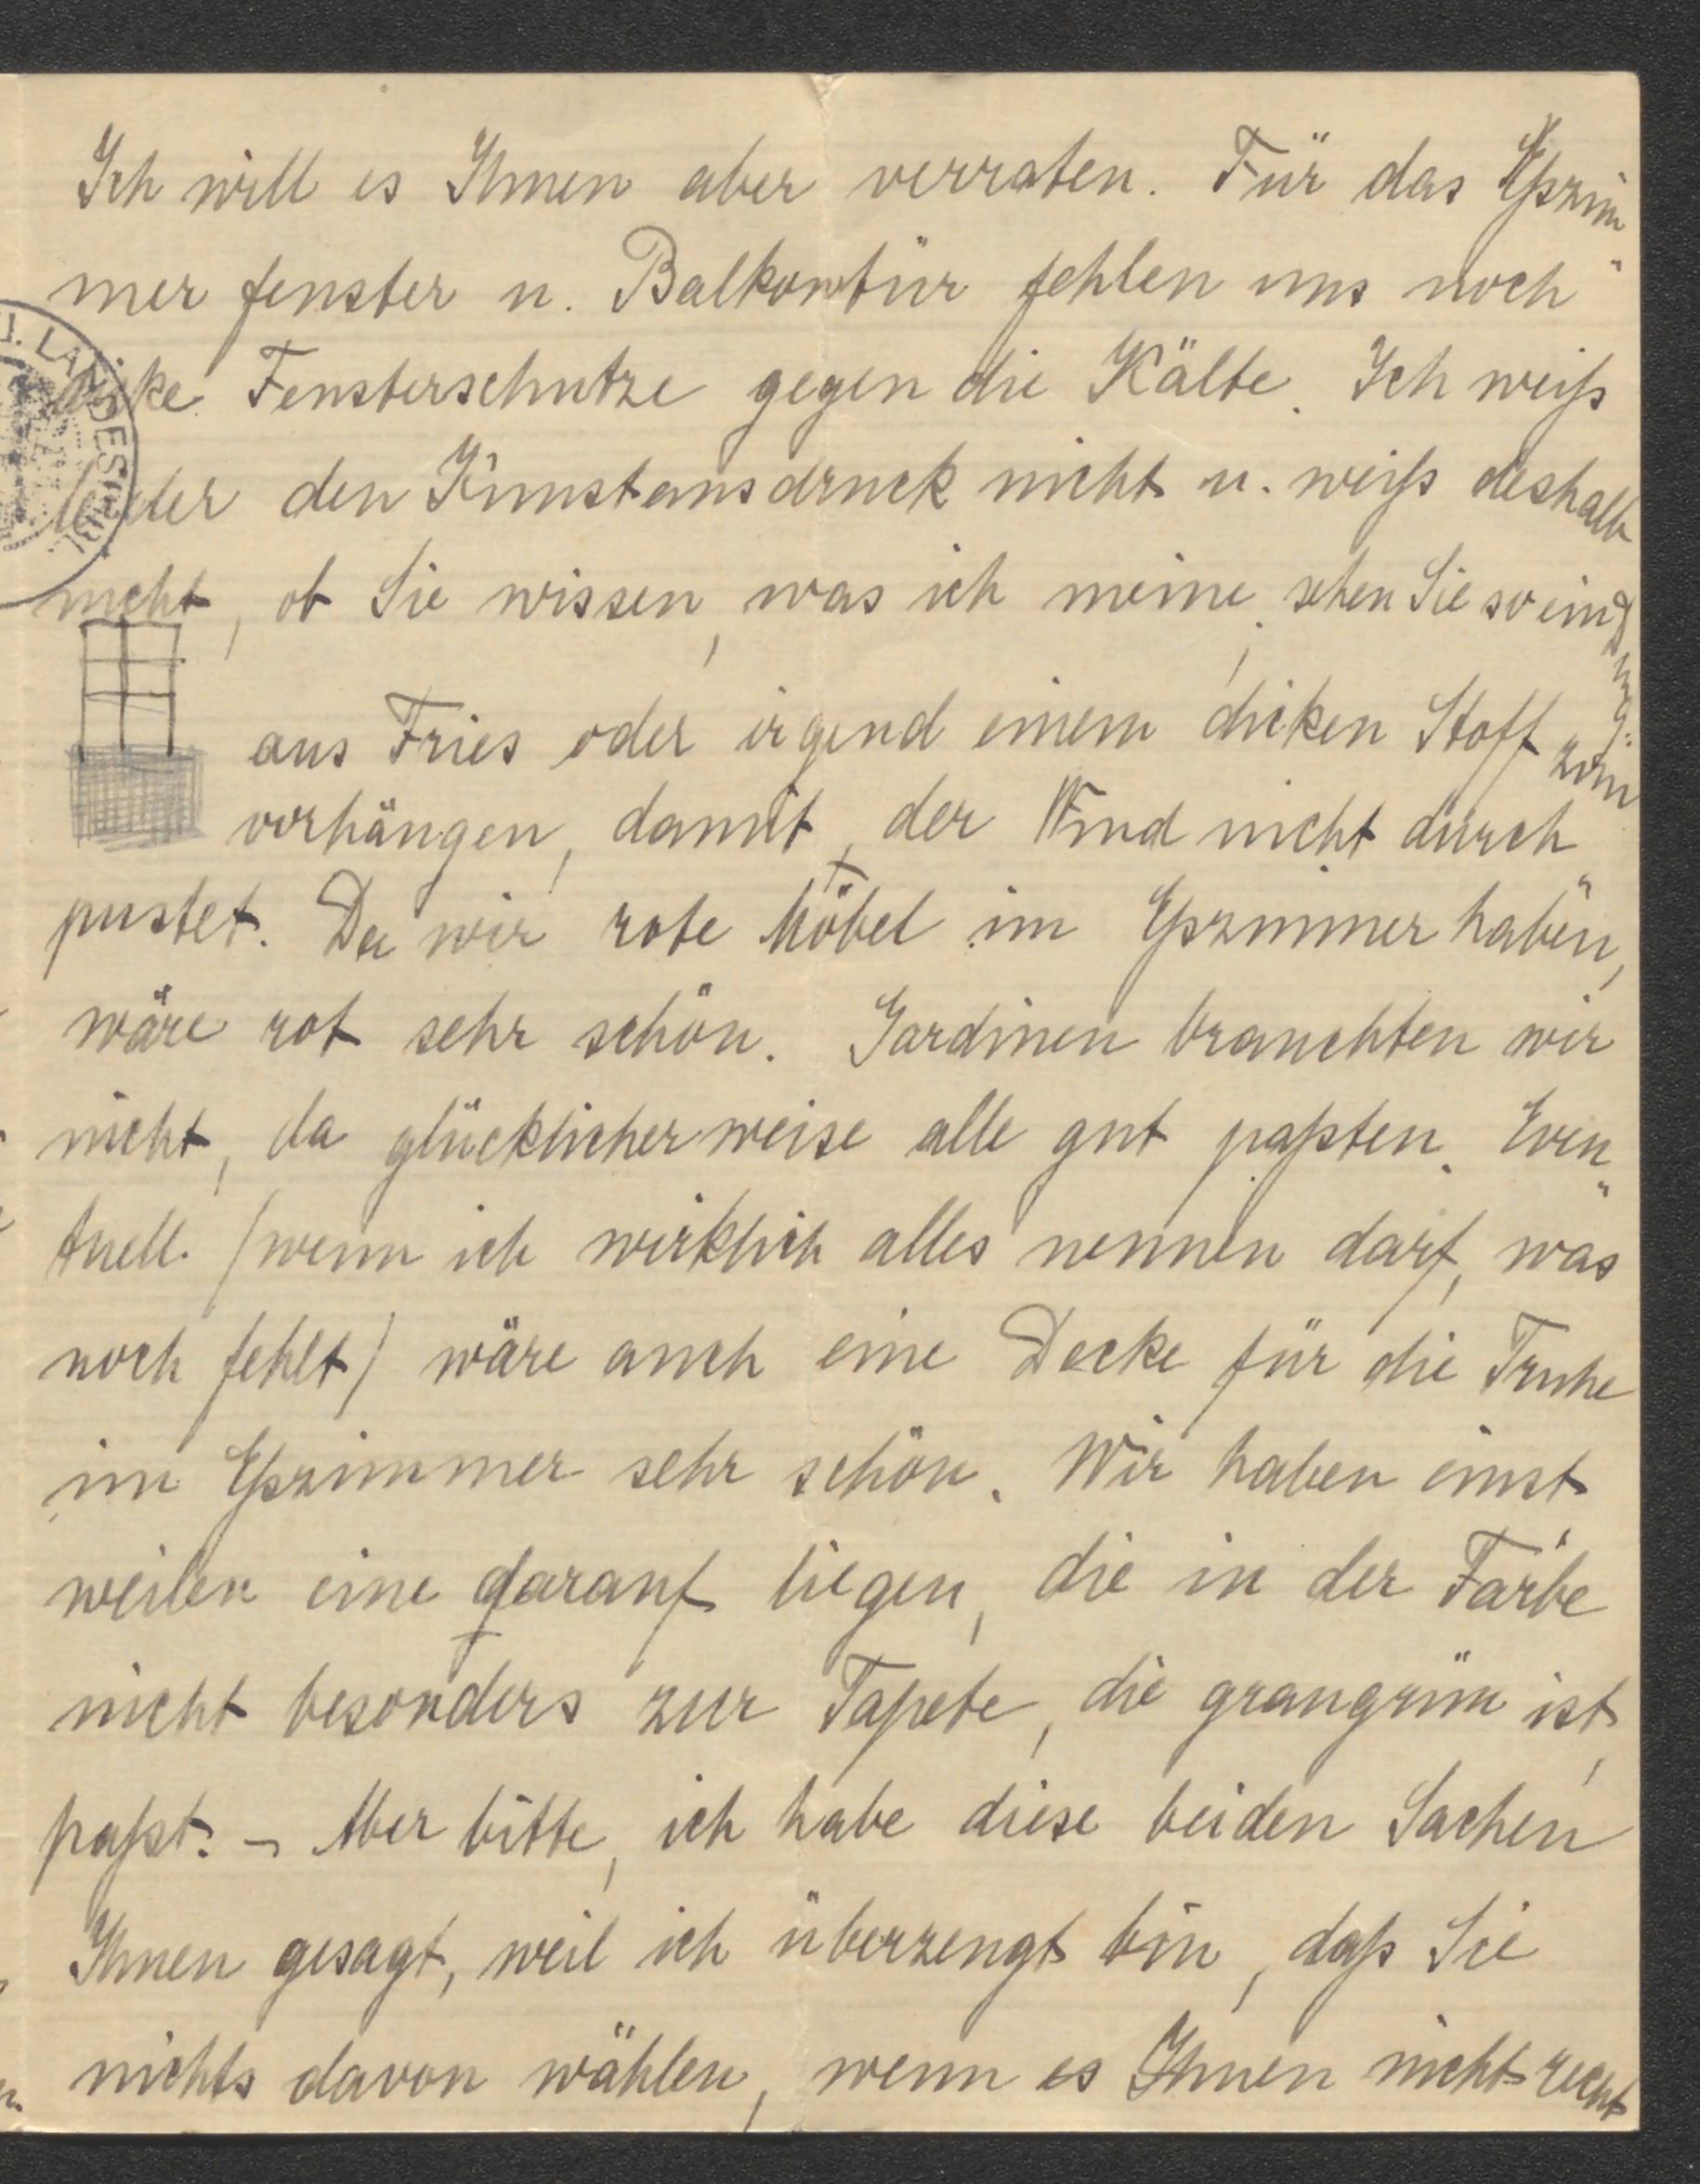 Ich will es Ihnen aber verraten. Für das Eßzim
mer fenster u. Balkontür fehlen uns noch
dicke Fensterschutze gegen die Kälte. Ich weiß
leider den Kunstausdruck nicht u. weiß deshalb
nicht, ob Sie wissen, was ich meine, sehen Sie so ein Ding:
aus Fries oder irgend einem dicken Stoff zum
vorhängen, damit, der Wind nicht durch
pustet. Da wir rote Möbel im Eßzimmer haben,
wäre rot sehr schön. Gardinen brauchten wir
nicht, da glücklicherweise alle gut paßten. Even"
tuell. (wenn ich wirklich alles nennen darf, was
noch fehlt) wäre auch eine Decke für die Truhe
im Eßzimmer sehr schön. Wir haben einst
weilen eine darauf liegen, die in der Farbe
nicht besonders zur Tapete, die graugrün ist,
paßt. – Aber bitte, ich habe diese beiden Sachen
Ihnen gesagt, weil ich überzeugt bin, daß Sie
nichts davon wählen, wenn es Ihnen nicht recht